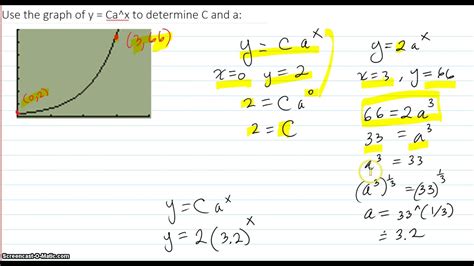 Use the graph of y = Ca^x to determine C and a:
(3,66)
(0,2)
y = C a^x
x=0 y = 2
2 = C a^0
2 = C
y = C a^x
y = 2(3.2)^x
y = 2 a^x
x = 3, y = 66
66 = 2a^3
33 = a^3
a^3 = 33
(a^3)^1/3 = (33)^1/3
a = 33^(1/3)
≐ 3.2
Screencast-O-Matic.com